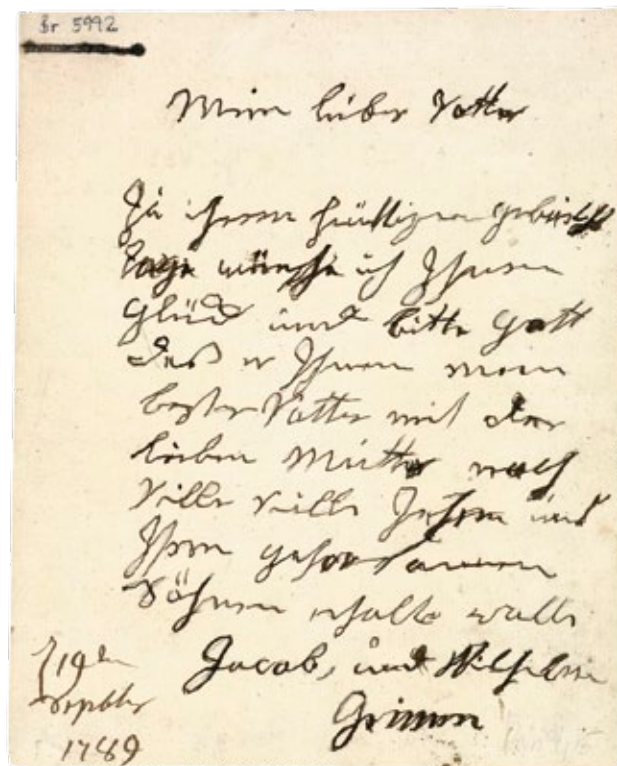 Br 5992
Mein lieber Vatter
Zu ihrem heuttigen gebuhrts
tage wünsche ich Ihnen
Glück und bitte Gott
daß er Ihnen mein
bester Vatter mit der
lieben Mutter noch
Ville ville Jahre und
Ihren gehorsammen
Söhnen erhalte wolle
Jacob, und Wilhelm
Grimm
19den
Septbr
1789